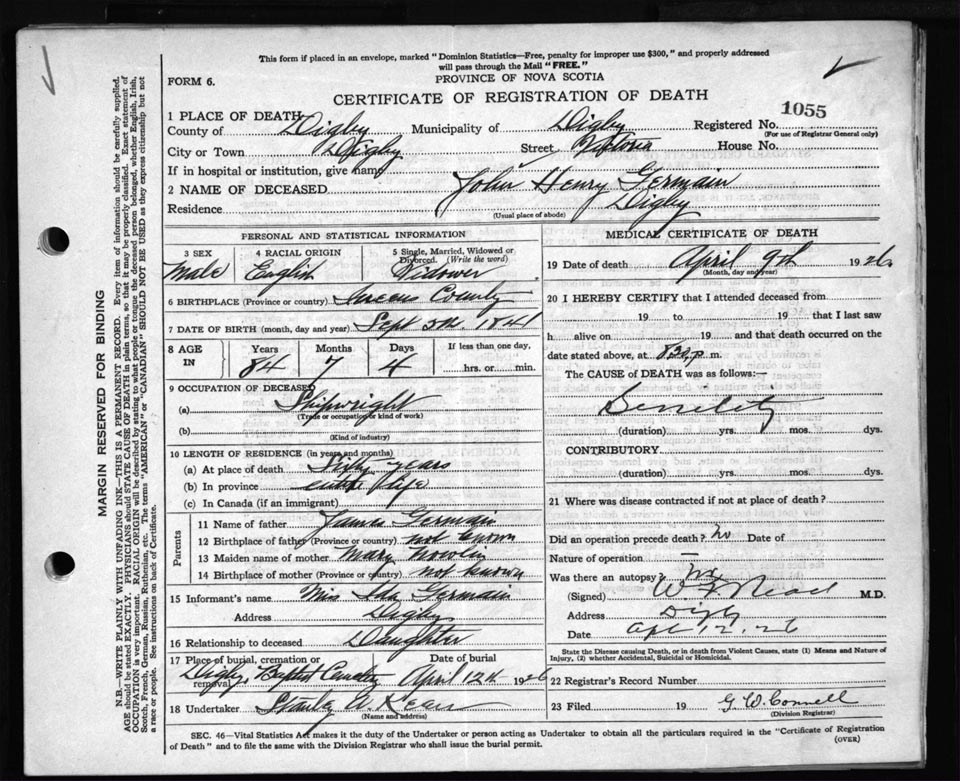 This form if placed in an envelope, marked "Dominion Statistics—Free, penalty for improper use $300," and properly addressed
will pass through the Mail "FREE."
FORM 6.
PROVINCE OF NOVA SCOTIA
CERTIFICATE OF REGISTRATION OF DEATH
1055
1 PLACE OF DEATH
County of Digby Municipality of Digby Registered No.
(For use of Registrar General only)
City or Town Digby Street Victoria House No.
If in hospital or institution, give name
2 NAME OF DECEASED John Henry Germain
Residence Digby
(Usual place of abode)
PERSONAL AND STATISTICAL INFORMATION
3 SEX 4 RACIAL ORIGIN 5 Single, Married, Widowed or Divorced. (Write the word)
Male English Widower
6 BIRTHPLACE (Province or country) Queens County
7 DATE OF BIRTH (month, day and year) Sept 5th. 1841
8 AGE IN Years Months Days If less than one day,
84 7 4 hrs. or min.
9 OCCUPATION OF DECEASED
(a) Shipwright
(Trade or occupation or kind of work)
(b)
(Kind of industry)
10 LENGTH OF RESIDENCE (in years and months)
(a) At place of death Sixty years
(b) In province entire life
(c) In Canada (if an immigrant)
Parents
11 Name of father James Germain
12 Birthplace of father (Province or country) not known
13 Maiden name of mother Mary Nowlin
14 Birthplace of mother (Province or country) not known
15 Informant's name Miss Germain
Address Digby
16 Relationship to deceased Daughter
17 Place of burial, cremation or removal Date of burial
Digby, Baptist Cemetery April 12th 1926
18 Undertaker Stanley A.
(Name and address)
MEDICAL CERTIFICATE OF DEATH
19 Date of death April 9th 1926
(Month, day and year)
20 I HEREBY CERTIFY that I attended deceased from
19 to 19 that I last saw
h alive on 19 and that death occurred on
date stated above, at p. m.
The CAUSE of DEATH was as follows:—
Senility
(duration) yrs. mos. dys.
CONTRIBUTORY
(duration) yrs. mos. dys.
21 Where was disease contracted if not at place of death?
Did an operation precede death? no Date of
Nature of operation —
Was there an autopsy? no
(Signed) M.D.
Address Digby
Date Apr 12. 26
State the Disease causing Death, or in death from Violent Causes, state (1) Means and Nature of
Injury, (2) whether Accidental, Suicidal or Homicidal.
22 Registrar's Record Number
23 Filed 19 G. W. Connell
(Division Registrar)
SEC. 46—Vital Statistics Act makes it the duty of the Undertaker or person acting as Undertaker to obtain all the particulars required in the "Certificate of Registration
of Death" and to file the same with the Division Registrar who shall issue the burial permit.
(OVER)
MARGIN RESERVED FOR BINDING
N.B.—WRITE PLAINLY WITH UNFADING INK—THIS IS A PERMANENT RECORD. Every item of information should be carefully supplied.
AGE should be stated EXACTLY. PHYSICIANS should STATE CAUSE OF DEATH in plain terms, so that it may be properly classified. Exact statement of
OCCUPATION is very important. RACIAL ORIGIN will be described by stating to what people or tongue the deceased person belonged, whether English, Irish,
Scotch, French, German, Russian, Ruthenian, etc. The terms "AMERICAN" or "CANADIAN" SHOULD NOT BE USED as they express citizenship but not
a race or people. See instructions on back of Certificate.